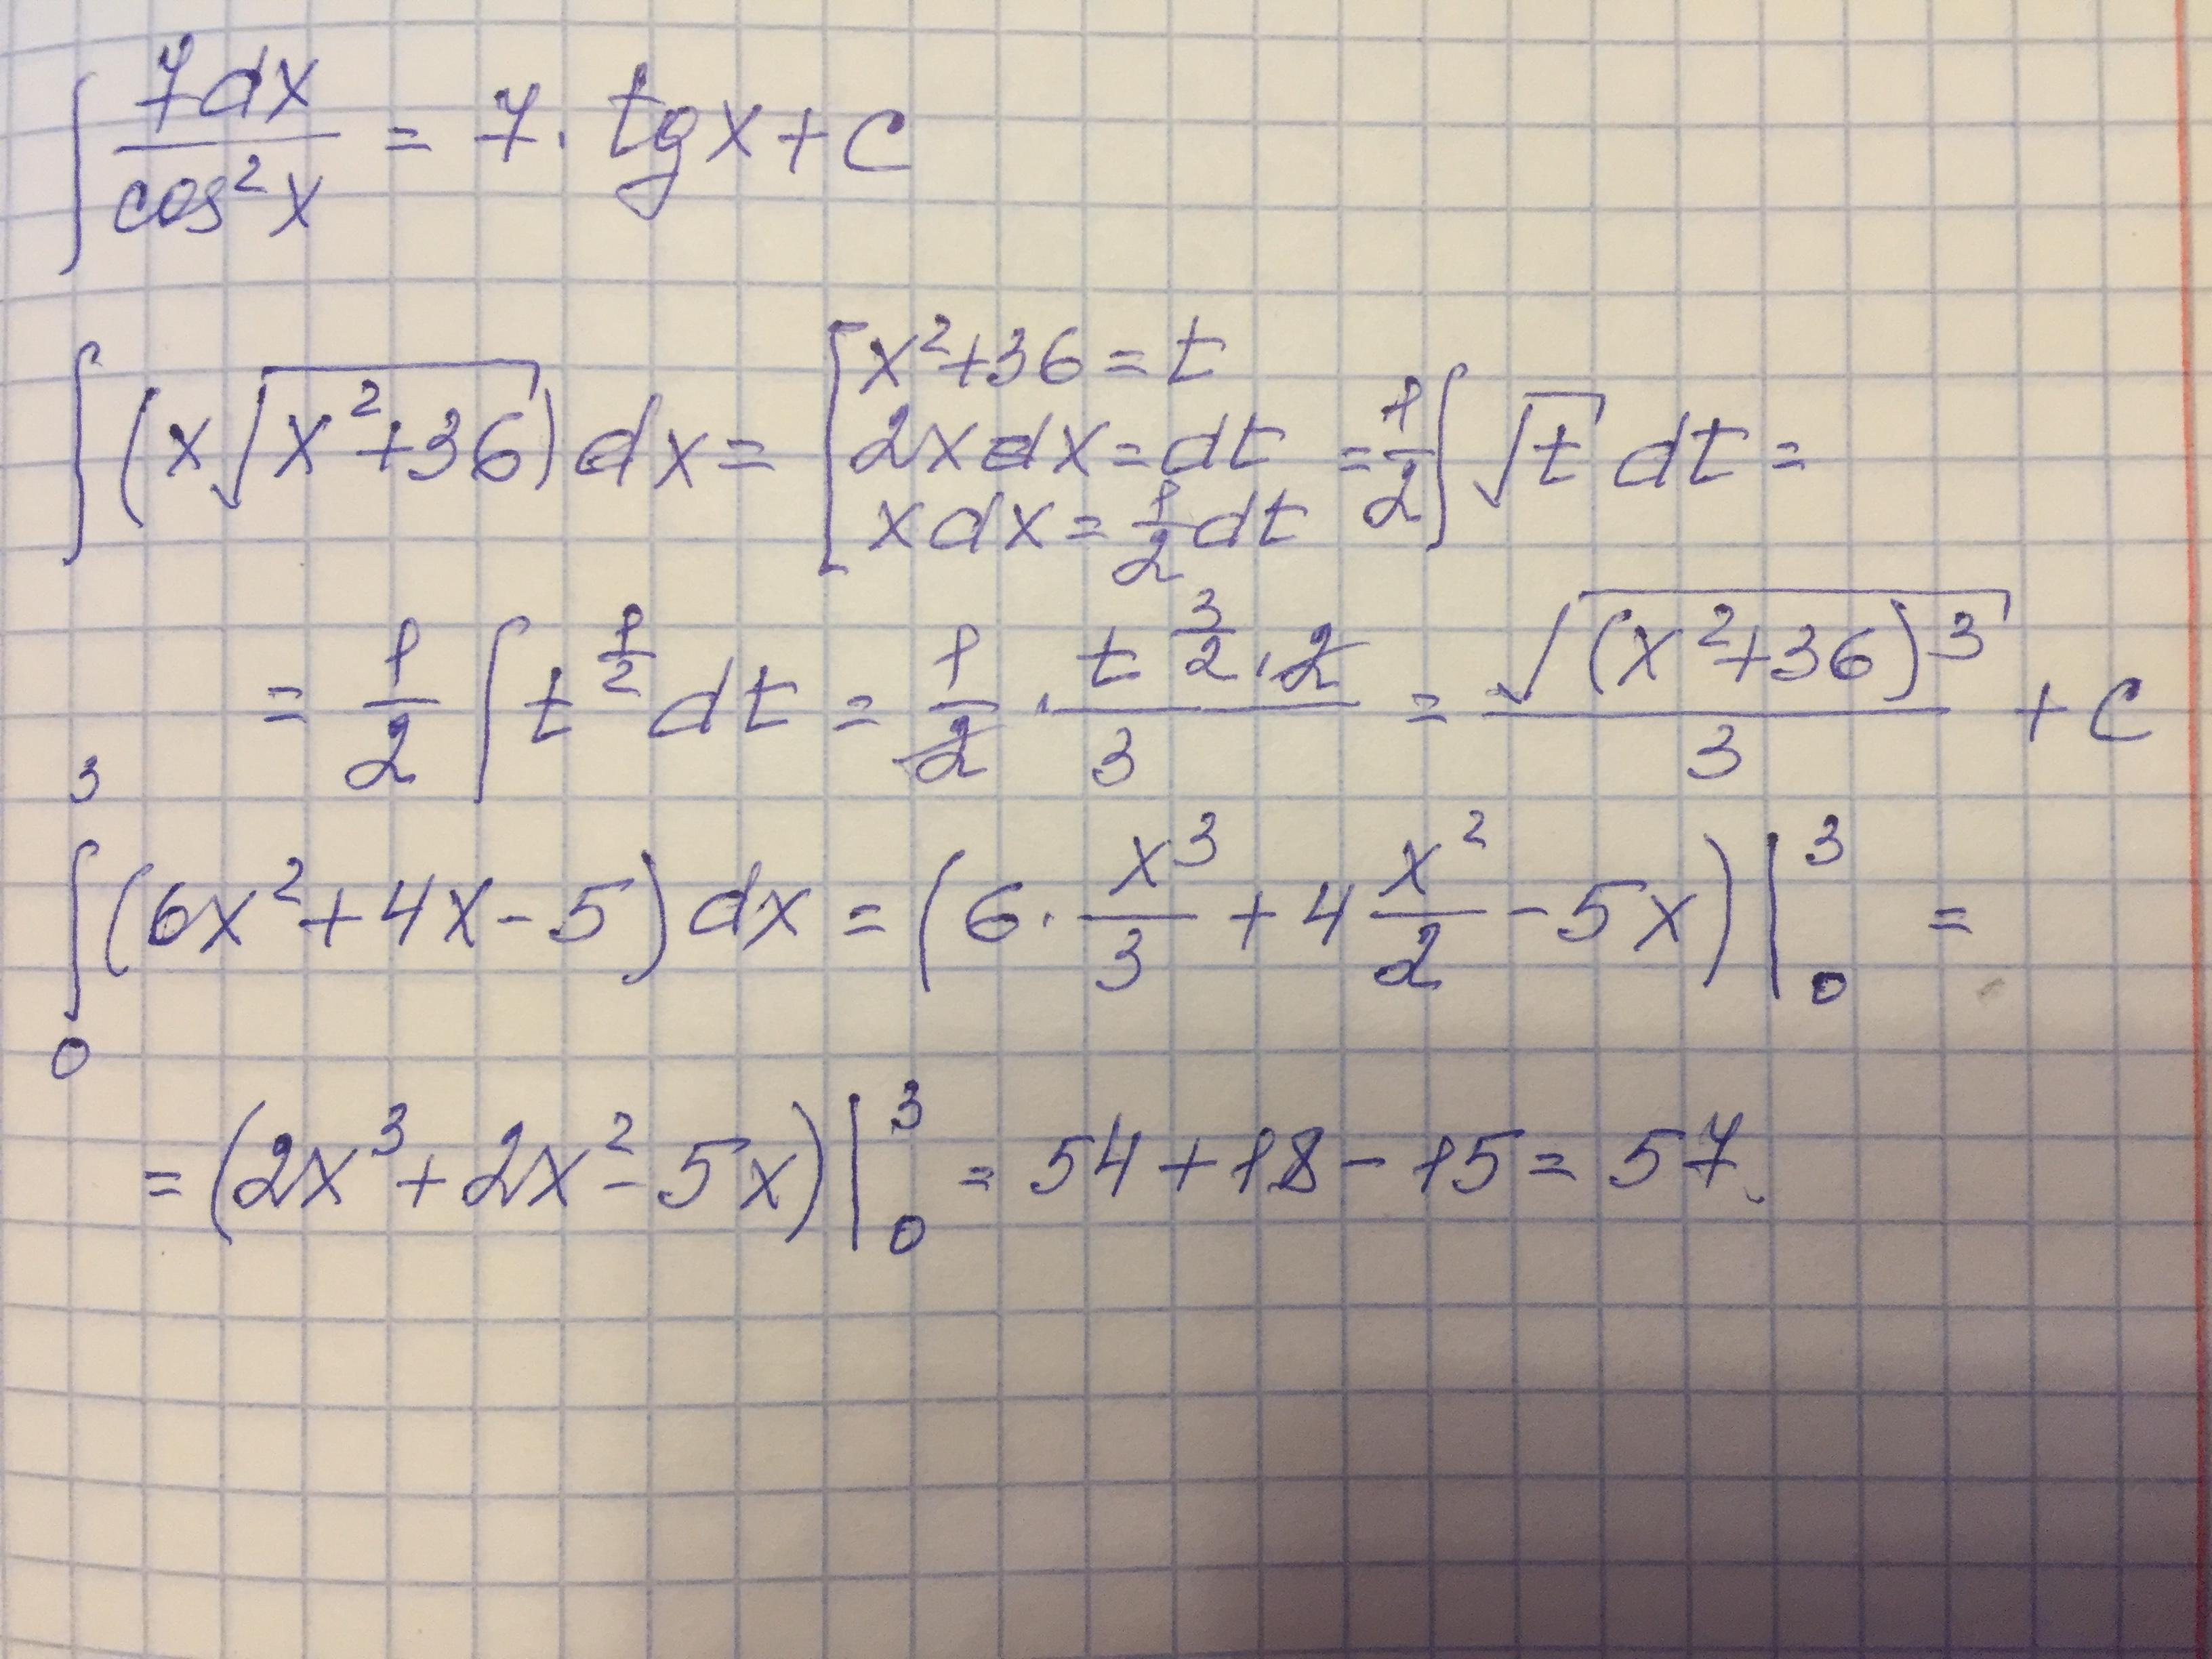 ∫ 7dx/cos²x = 7 · tg x + C
∫ (x√(x²+36)) dx = [x²+36 = t; 2x dx = dt; x dx = 1/2 dt = 1/2 ∫ √t dt =
= 1/2 ∫ t^(1/2) dt = 1/2 · (t^(3/2) · 2)/3 = √((x²+36)³)/3 + C
∫₀³ (6x² + 4x - 5) dx = (6 · x³/3 + 4 x²/2 - 5x)|₀³ =
= (2x³ + 2x² - 5x)|₀³ = 54 + 18 - 15 = 57.